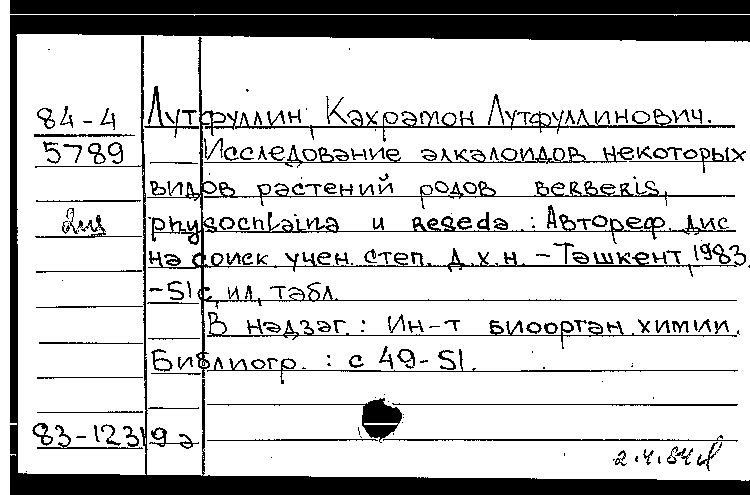 84-4 Лутфуллин, Кахрамон Лутфуллинович.
5789 Исследование алкалоидов некоторых
видов растений родов Berberis,
2 physochlaina и Reseda : Автореф. дис
на соиск. учен. степ. д.х.н. - Ташкент, 1983.
-51 с, ил, табл.
В надзаг. : Ин-т биоорган. химии.
Библиогр. : с 49-51.
83-12319 а
2.4.84